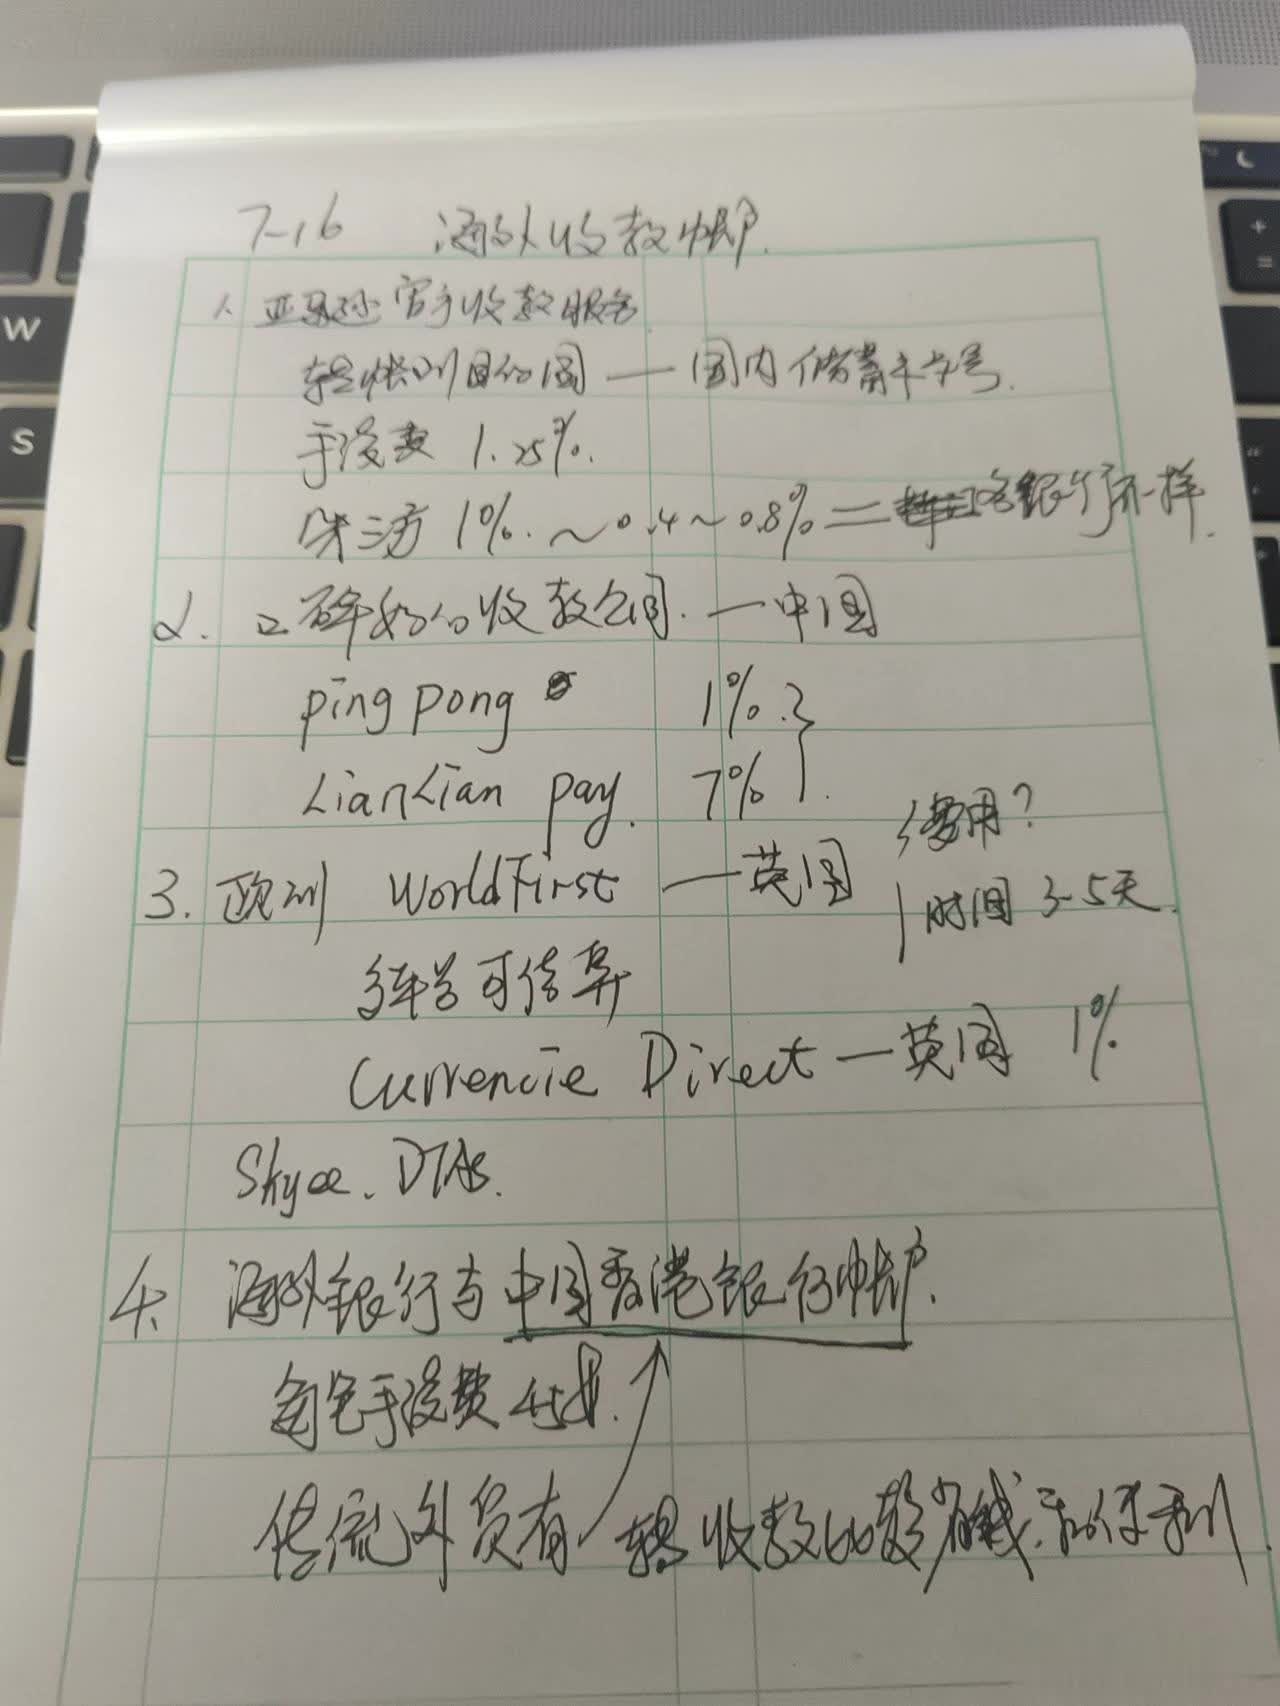 7-16 海外收款帐户.
1. 亚马逊官方收款服务
转帐到目的国 — 国内储蓄卡卡号.
手续费 1.25%.
第三方 1%. ~0.4~0.8% = 各银行不一样.
2. 口碑好的收款公司. — 中国
Ping Pong 1%.
LianLian pay. 7%
费用?
3. 欧洲 WorldFirst — 英国
时间 3-5天.
多平台可结算
Currencie Direct — 英国 1%
Skyee、DTAS.
4. 海外银行与中国香港银行帐户.
每笔手续费
传统外贸有 转收款比较省钱、和便利.